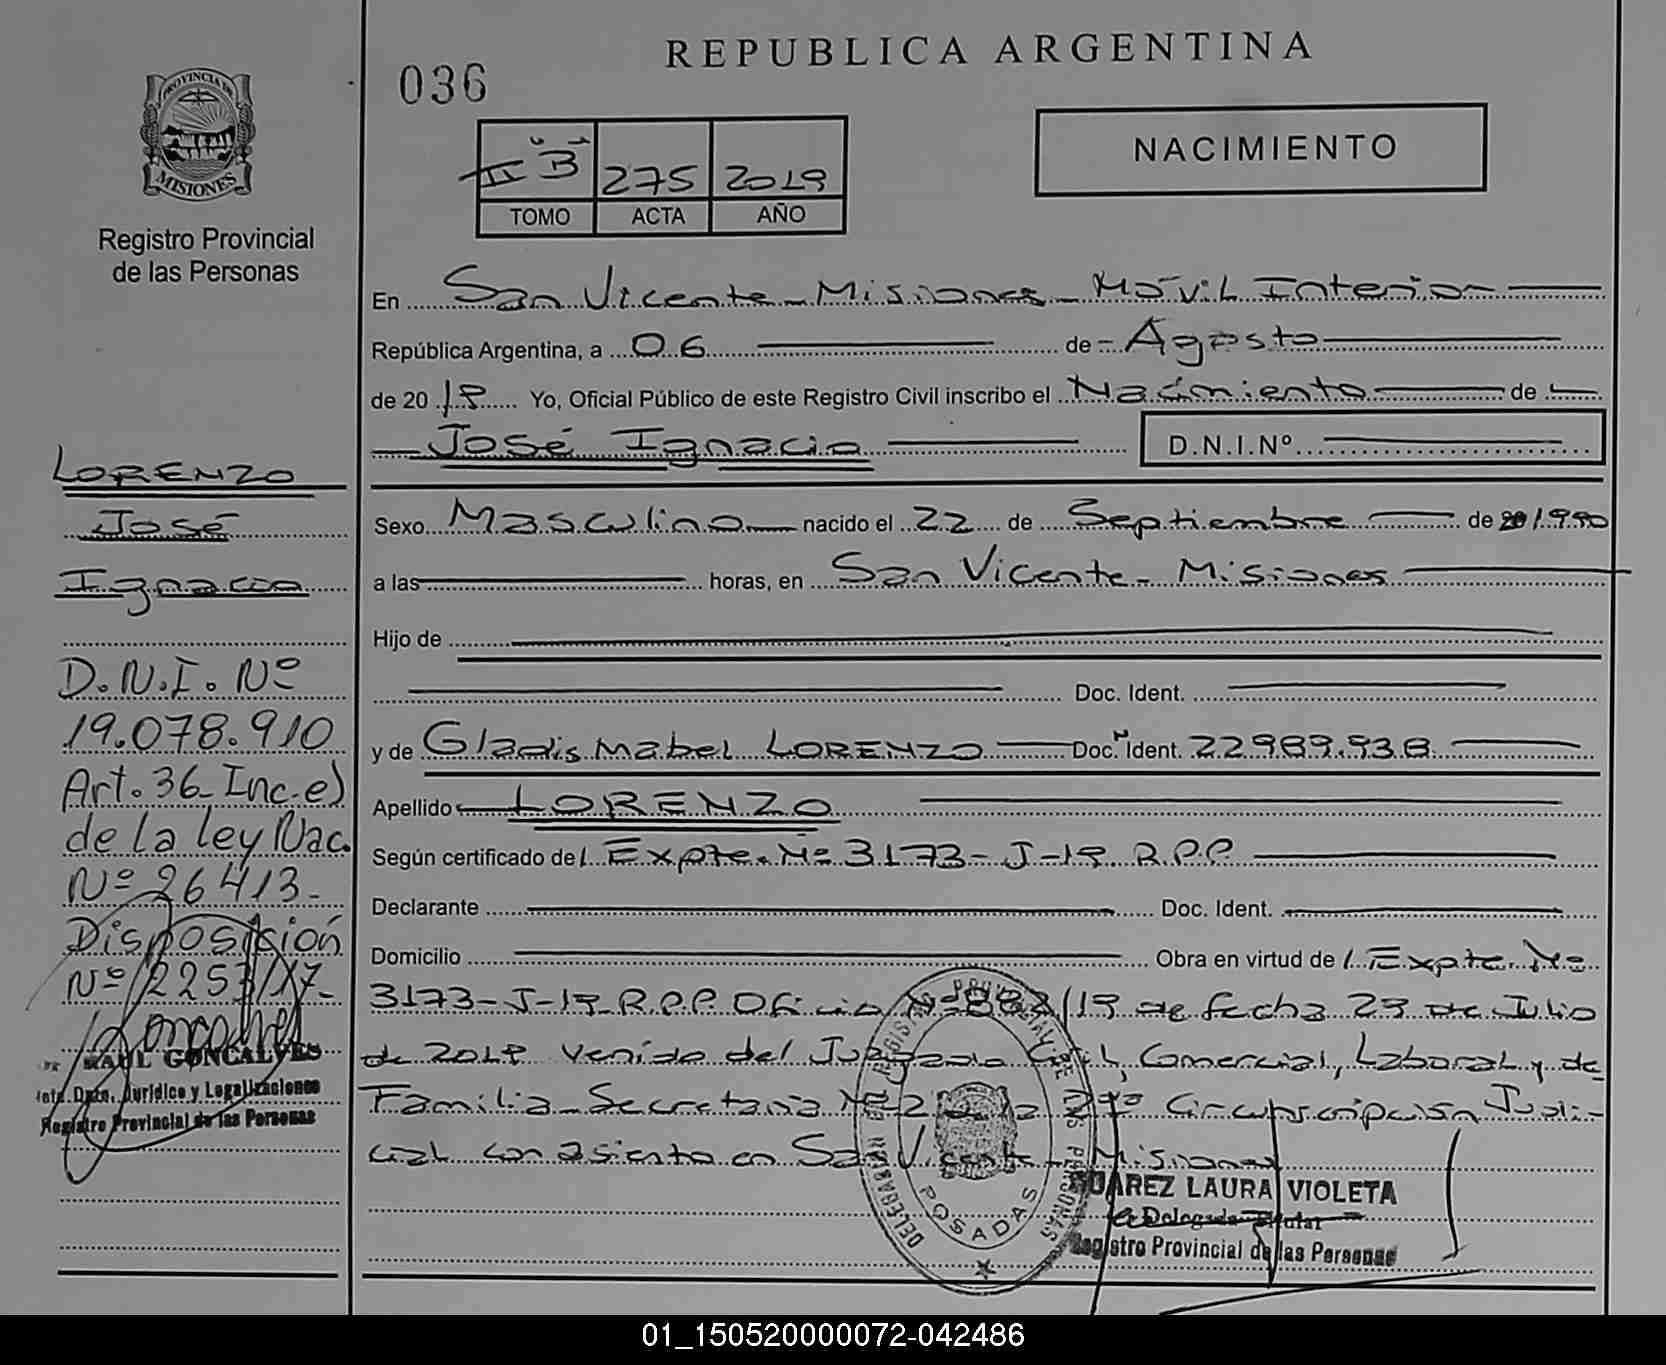 REPUBLICA ARGENTINA
036
PROVINCIA DE
MISIONES
Registro Provincial
de las Personas
II "B" 275 2019
TOMO ACTA AÑO
NACIMIENTO
En San Vicente - Misiones - Móvil Interior
República Argentina, a 06 de Agosto
de 20 19 Yo, Oficial Público de este Registro Civil inscribo el Nacimiento de
José Ignacio D.N.I.Nº
Sexo Masculino nacido el 22 de Septiembre de 1990
a las horas, en San Vicente - Misiones
Hijo de
Doc. Ident.
y de Gladis Mabel LORENZO Doc. Ident. 22989.938
Apellido LORENZO
Según certificado del Expte. Nº 3173-J-19 R.P.P
Declarante Doc. Ident.
Domicilio Obra en virtud del Expte. Nº
3173-J-19 R.P.P. Oficio Nº /19 de fecha 29 de Julio
de 2019 venido del Juzgado Civil, Comercial, Laboral y de
Familia - Secretaria Nº 2 de la Circunscripción Judi-
cial con asiento en San Vicente - Misiones
LORENZO
José
Ignacio
D.N.I. Nº
19.078.910
Art. 36 Inc. e)
de la ley Nac.
Nº 26413-
Disposición
Nº 2253/17-
RAUL GONCALVES
Dpto. Jurídico y Legalizaciones
Registro Provincial de las Personas
POSADAS
SUAREZ LAURA VIOLETA
Delegada Titular
Registro Provincial de las Personas
01_150520000072-042486